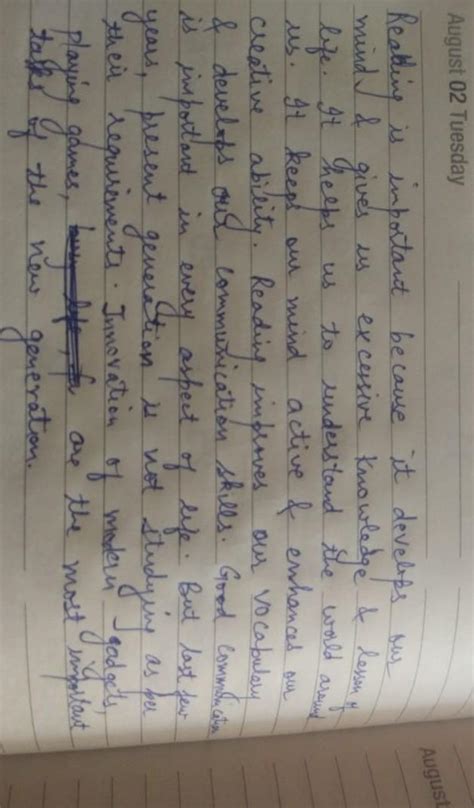 August 02 Tuesday
Reading is important because it develops our
mind & gives us excessive knowledge & lesson of
life. It helps us to understand the world around
us. It keeps our mind active & enhances our
creative ability. Reading improves our vocabulary
& develops our communication skills. Good communication
is important in every aspect of life. But last few
years, present generation is not studying as per
their requirements. Innovation of modern gadgets,
playing games, are the most important
tasks of the new generation.
August